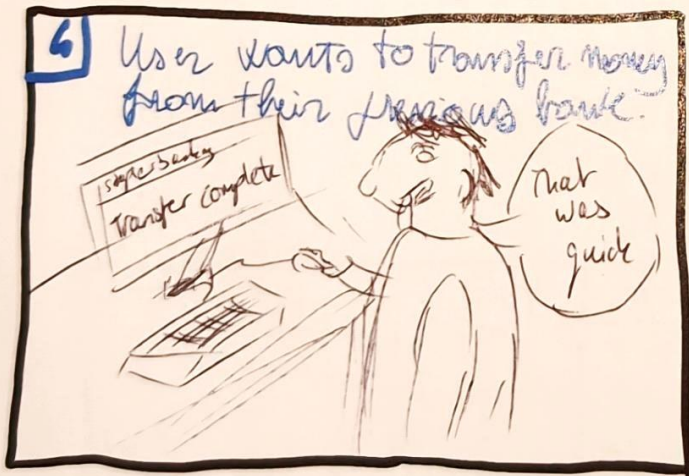 6
User wants to transfer money
from their previous bank.
superbanking
Transfer complete
That
was
quick